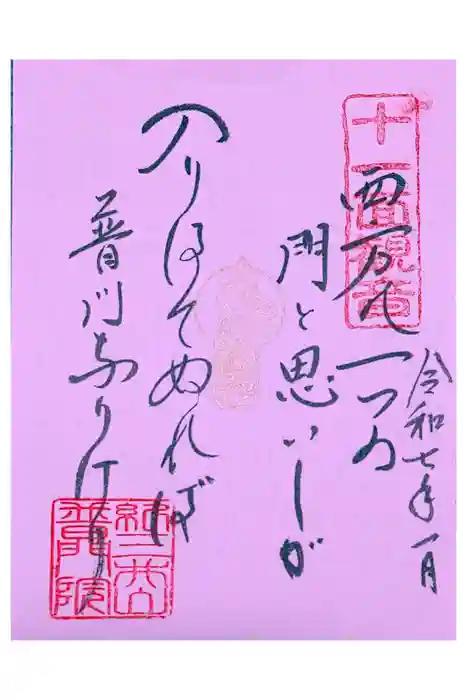 十一面観音
西方は一つの
門と思いしが
入りはてぬれば
普門なりけり
令和七年一月
普門院